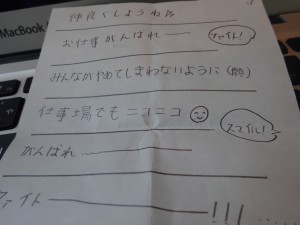 MacBook
仲良くしようねぇ
お仕事がんばれー
ファイト!
みんながやめてしまわないように(願)
仕事場でもニコニコ
スマイル!
がんばれー
ファイトー!!!